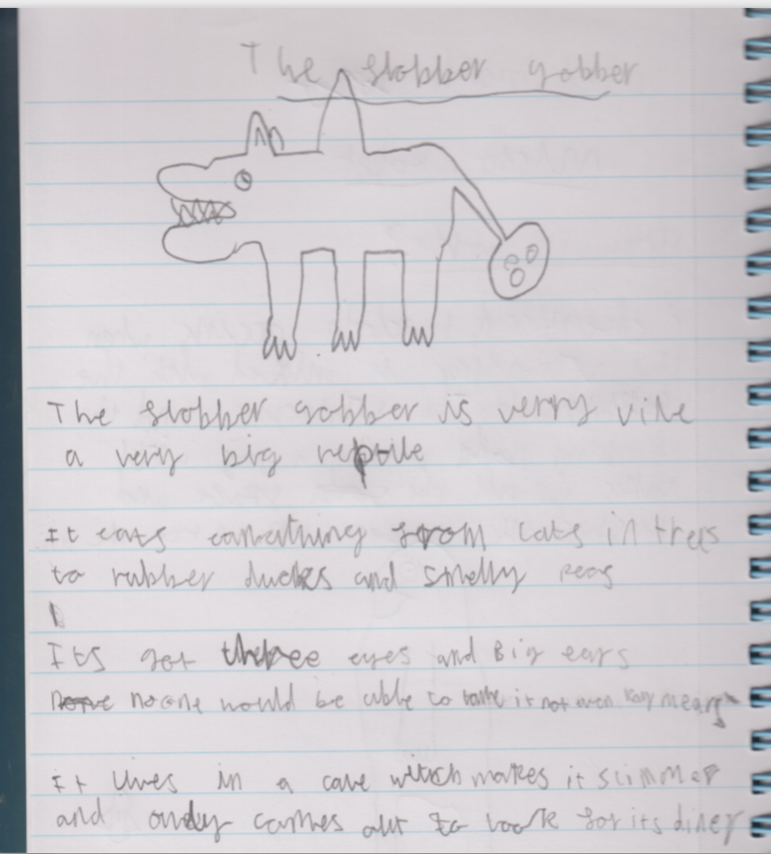 The slobber gobber
The slobber gobber is verry vile
a very big reptile
It eats from cats in trees
to rubber duckes and smelly peas
Its got threee eyes and Big ears
noone would be able to it not even
It lives in a cave witch makes it slimmer
and ondy comhes out to look for its diner